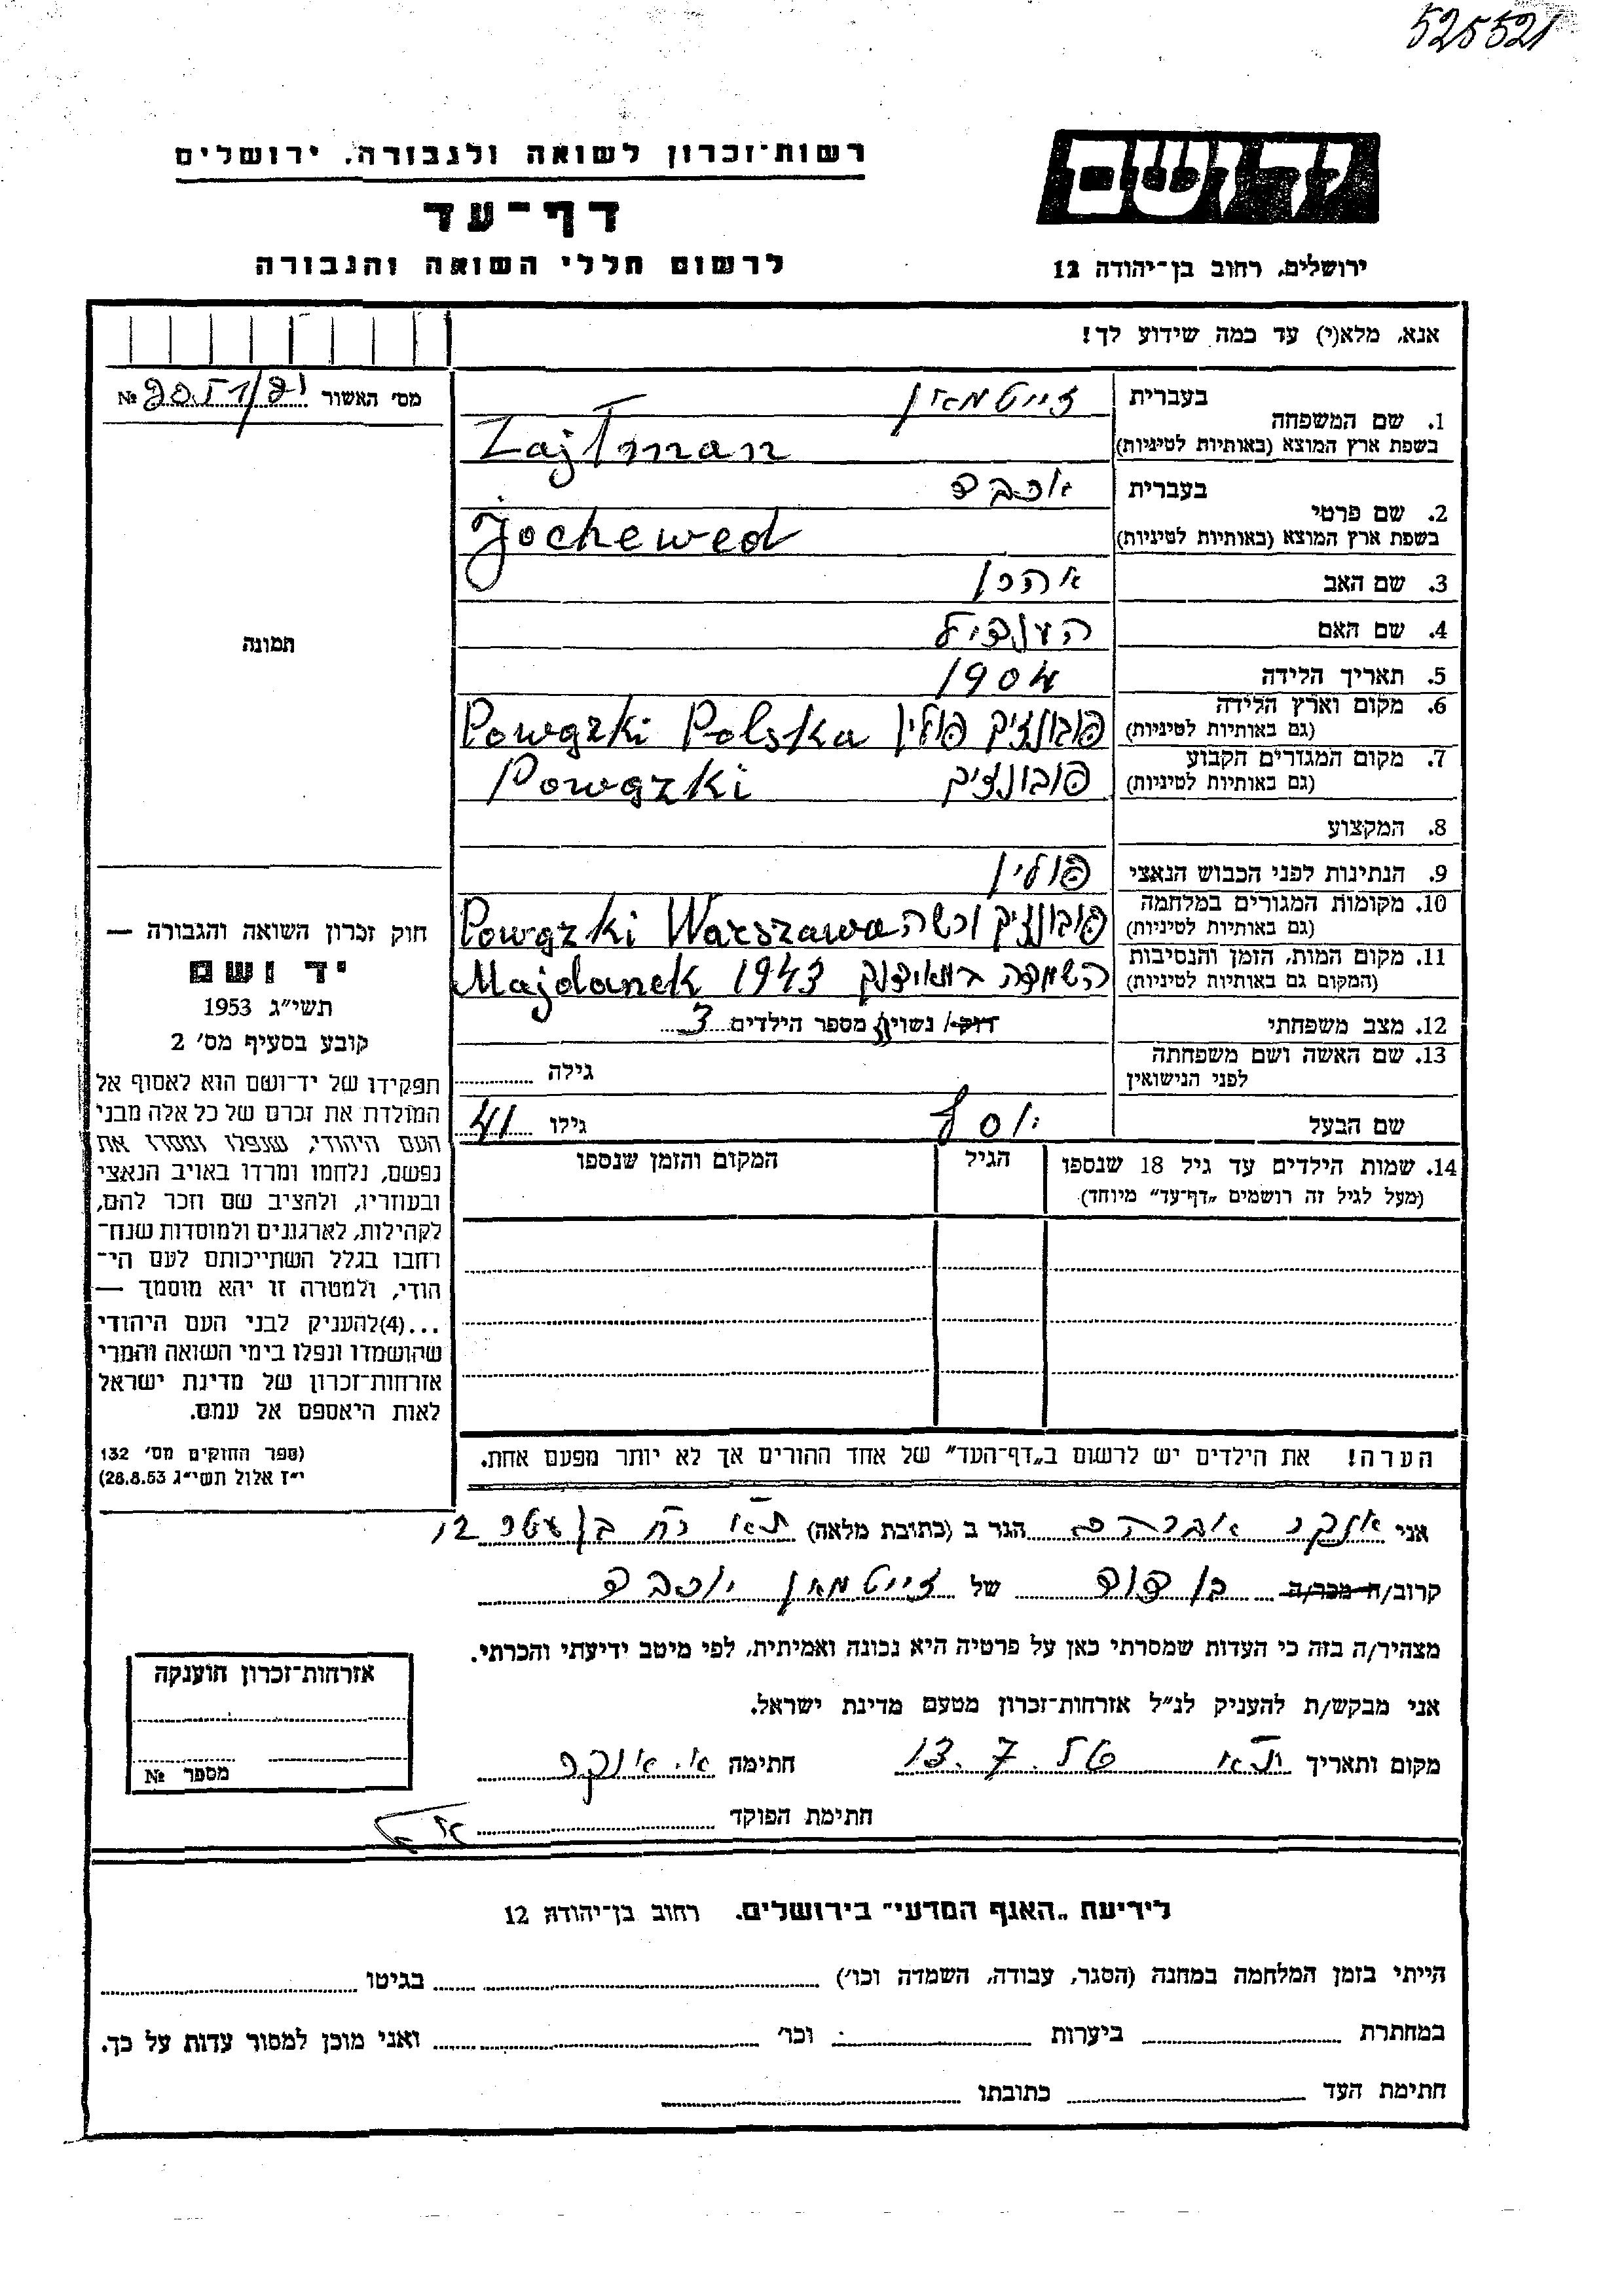 525521
רשות־זכרון לשואה ולגבורה, ירושלים
יד ושם
דף־עד
לרשום חללי השואה והגבורה
ירושלים, רחוב בן־יהודה 12
אנא, מלא(י) עד כמה שידוע לך!
מס׳ האשור №
1. שם המשפחה
בעברית זייטמאן
בשפת ארץ המוצא (באותיות לטיניות) Zajtman
2. שם פרטי
בעברית יוכבד
בשפת ארץ המוצא (באותיות לטיניות) Jochewed
3. שם האב אהרן
4. שם האם הענדיל
5. תאריך הלידה 1904
6. מקום וארץ הלידה
(גם באותיות לטיניות) פובונזיק פולין Powązki Polska
7. מקום המגורים הקבוע
(גם באותיות לטיניות) פובונזיק Powązki
8. המקצוע
9. הנתינות לפני הכבוש הנאצי פולין
10. מקומות המגורים במלחמה
(גם באותיות לטיניות) פובונזיק ורשה Powązki Warszawa
11. מקום המות, הזמן והנסיבות
(המקום גם באותיות לטיניות) השמדה במאידנק 1943 Majdanek
12. מצב משפחתי רוק/ נשוי/ה מספר הילדים 3
13. שם האשה ושם משפחתה
לפני הנישואין גילה
שם הבעל יוסף גילו 41
14. שמות הילדים עד גיל 18 שנספו
(מעל לגיל זה רושמים „דף־עד״ מיוחד)
הגיל
המקום והזמן שנספו
תמונה
חוק זכרון השואה והגבורה —
יד ושם
תשי״ג 1953
קובע בסעיף מס׳ 2
תפקידו של יד־ושם הוא לאסוף אל
המולדת את זכרם של כל אלה מבני
העם היהודי, שנפלו ומסרו את
נפשם, נלחמו ומרדו באויב הנאצי
ובעוזריו, ולהציב שם וזכר להם,
לקהילות, לארגונים ולמוסדות שנח־
רבו בגלל השתייכותם לעם הי־
הודי, ולמטרה זו יהא מוסמך —
...(4) להעניק לבני העם היהודי
שהושמדו ונפלו בימי השואה והמרי
אזרחות־זכרון של מדינת ישראל
לאות היאספם אל עמם.
(ספר החוקים מס׳ 132
י״ז אלול תשי״ג 28.8.53)
הערה! את הילדים יש לרשום ב„דף־העד״ של אחד ההורים אך לא יותר מפעם אחת.
אני אונקר אברהם הגר ב (כתובת מלאה) ת״א רח 12
קרוב/ה מכר/ה בן דוד של זייטמאן יוכבד
מצהיר/ה בזה כי העדות שמסרתי כאן על פרטיה היא נכונה ואמיתית, לפי מיטב ידיעתי והכרתי.
אני מבקש/ת להעניק לנ״ל אזרחות־זכרון מטעם מדינת ישראל.
מקום ותאריך ת״א 13.7.56 חתימה א. אונקר
חתימת הפוקד
אזרחות־זכרון הוענקה
מספר №
לידיעת „האגף המדעי״ בירושלים. רחוב בן־יהודה 12
הייתי בזמן המלחמה במחנה (הסגר, עבודה, השמדה וכו׳) בגיטו
במחתרת ביערות וכו׳ ואני מוכן למסור עדות על כך.
חתימת העד כתובתו